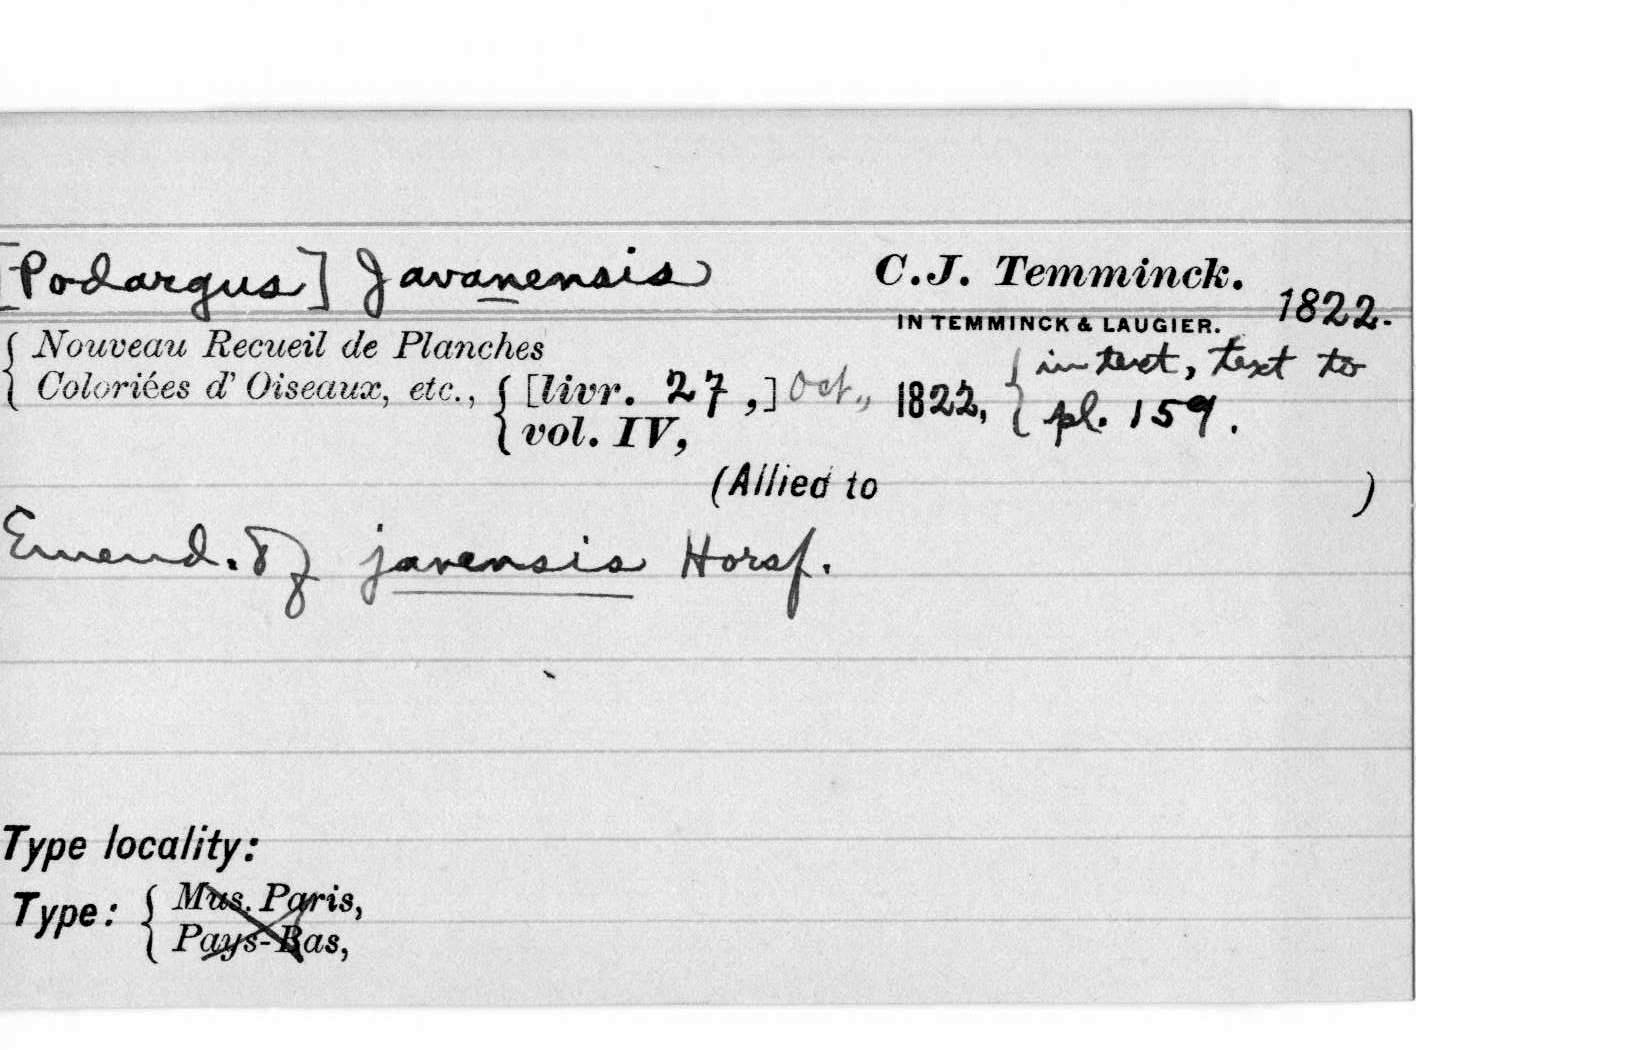 [Podargus] Javanensis C.J. Temminck.
IN TEMMINCK & LAUGIER. 1822.
{ Nouveau Recueil de Planches
Coloriées d' Oiseaux, etc., { [livr. 27,] Oct., 1822, { in text, text to
vol. IV, pl. 159.
(Allied to )
Emend. of javensis Horsf.
Type locality:
Type: { Mus. Paris,
Pays-Bas,